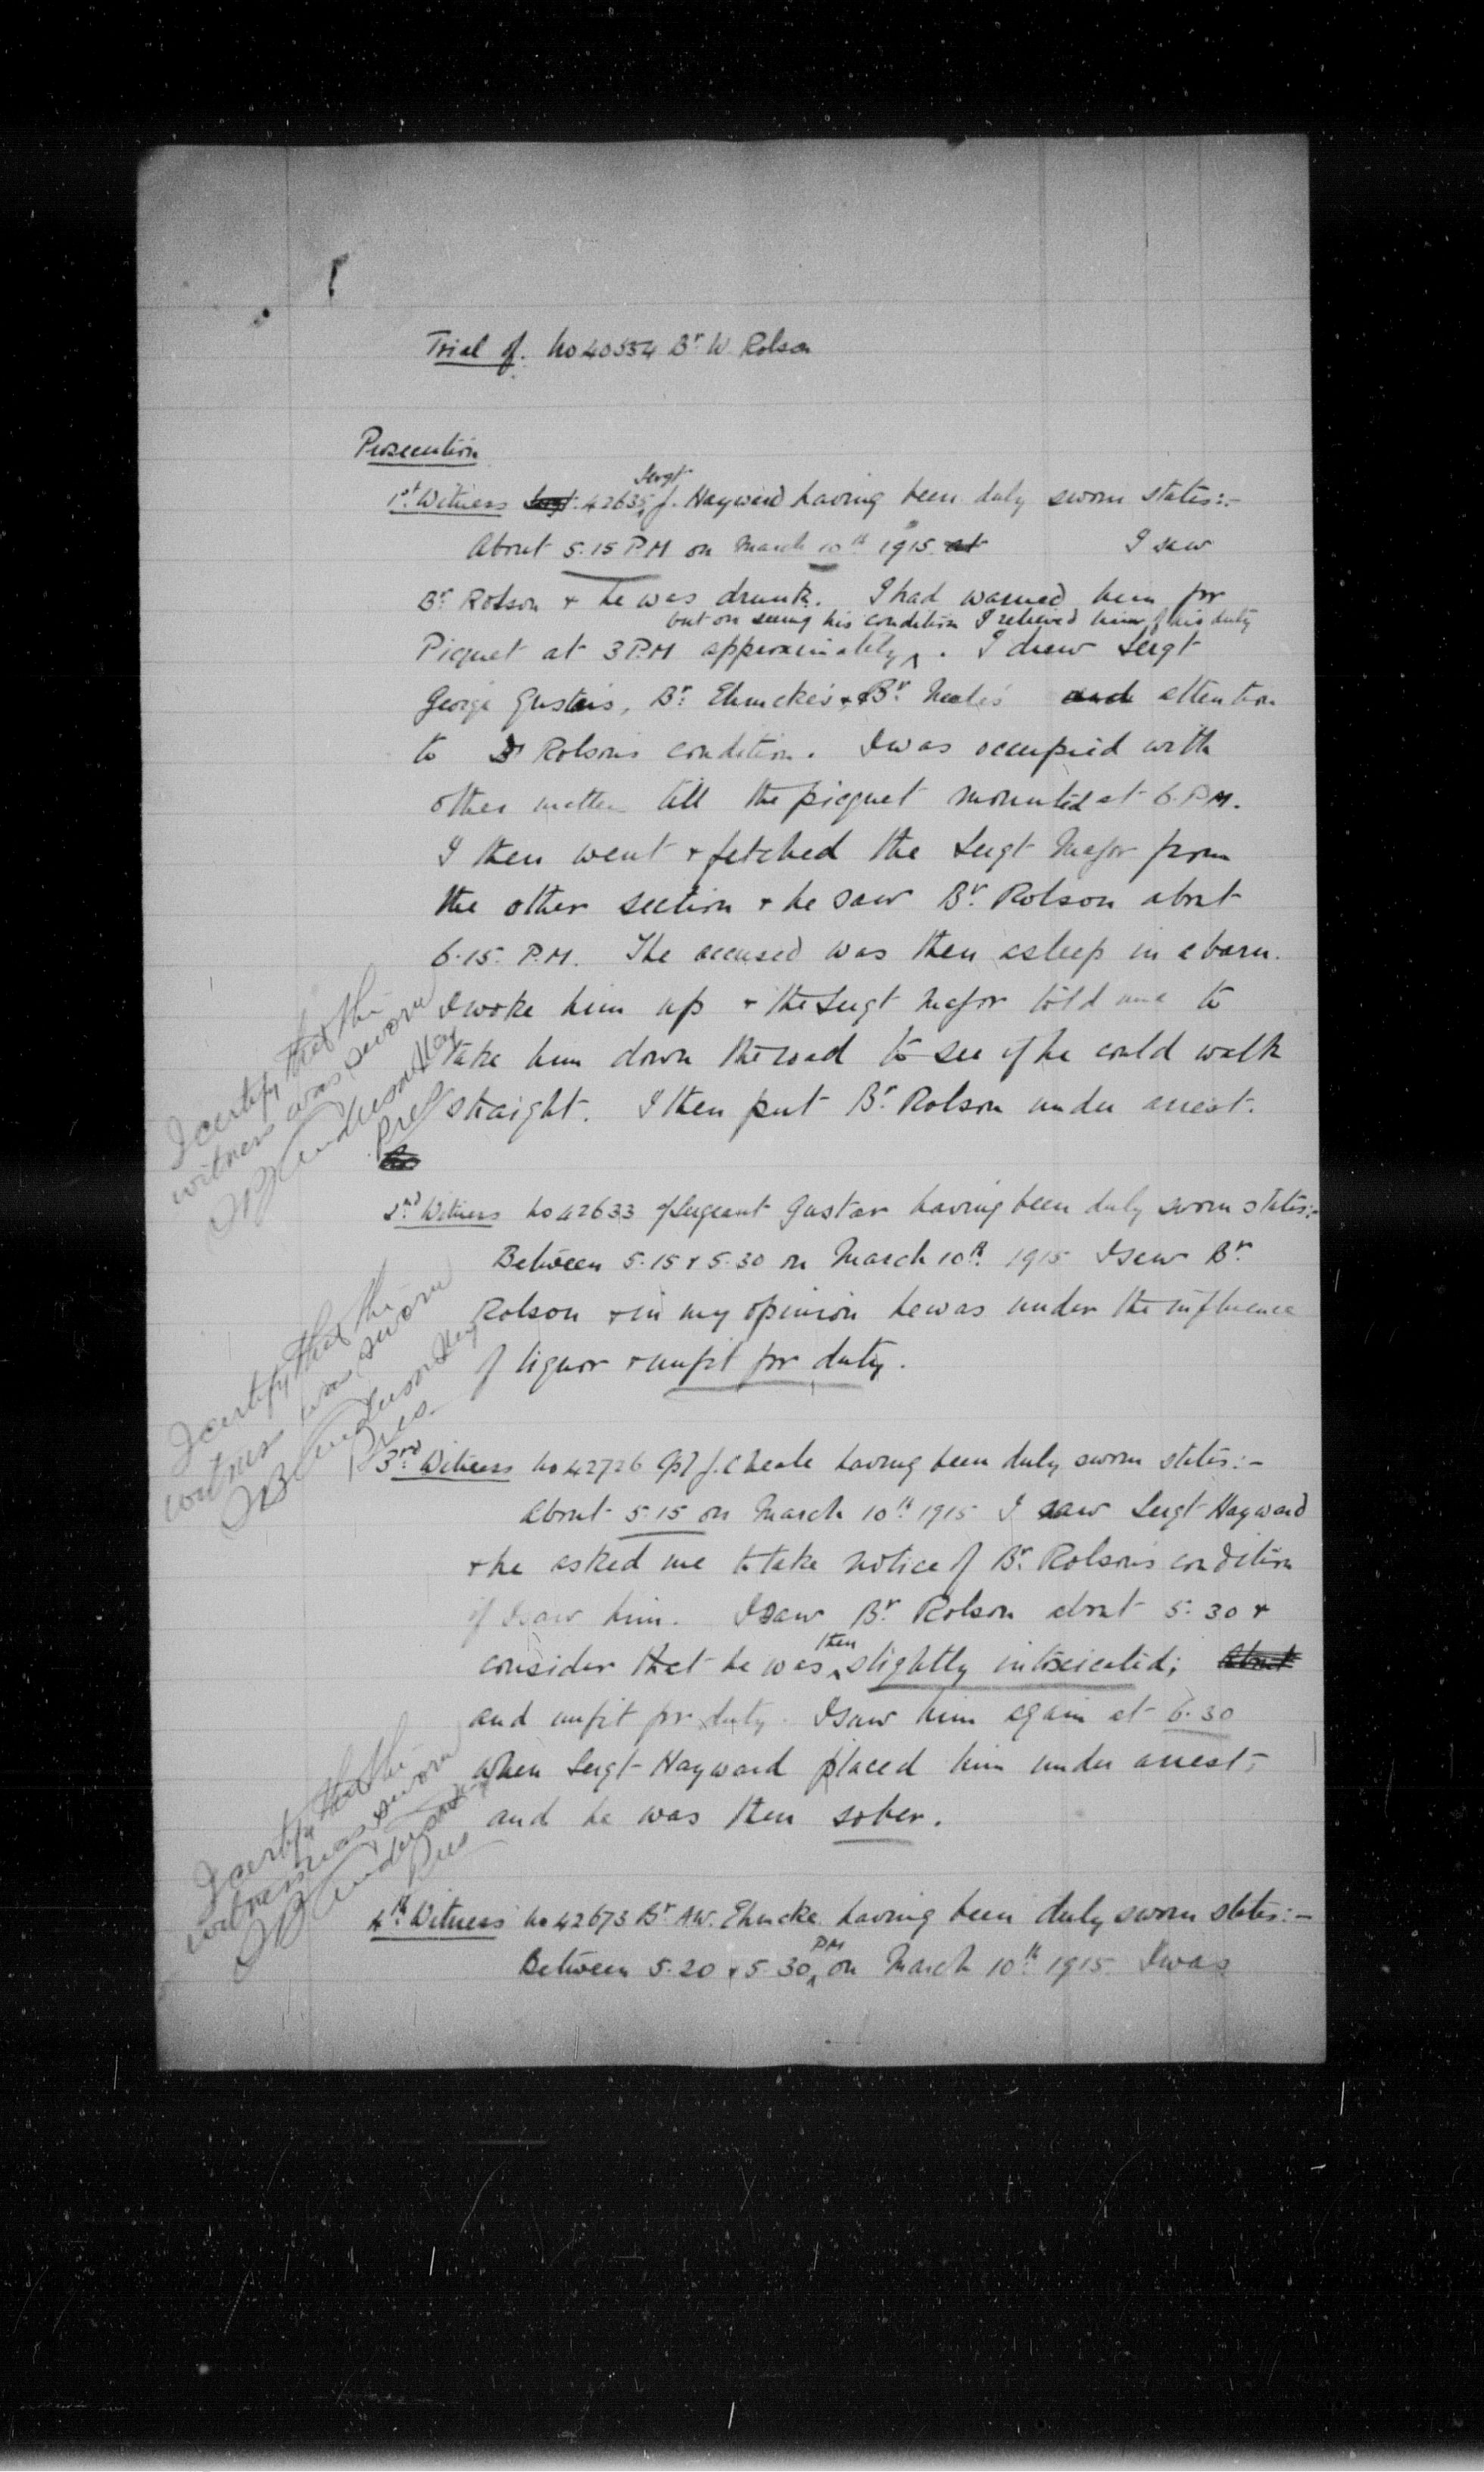 Trial of. No 40554 Br W. Rolson
Prosecution
1st Witness Sergt 42635 Sergt J. Hayward having been duly sworn states:-
About 5.15 P.M on March 10th 1915 at I saw
Br Rolson + he was drunk. I had warned him for
but on seeing his condition I relieved him of his duty
Picquet at 3 P.M approximately . I drew Sergt
George Gustar's, Br. Ehmcke's + Br. Neale's and attention
to Br Rolson's condition. I was occupied with
other matters till the picquet mounted at 6. P.M.
I then went + fetched the Sergt Major from
the other section + he saw Br. Rolson about
6.15. P.M. The accused was then asleep in a barn.
I woke him up + the Sergt Major told me to
take him down the road to see if he could walk
straight. I then put Br. Rolson under arrest.
I certify that this
witness was sworn
Anderson
Pres
2nd Witness No 42633 Sergeant Gustar having been duly sworn states:-
Between 5.15 + 5.30 on March 10th 1915 I saw Br.
Rolson + in my opinion he was under the influence
of liquor + unfit for duty.
I certify that this
witness was sworn
Anderson
Pres.
3rd Witness No 42726 Cpl J. Cheale having been duly sworn states:-
About 5.15 on March 10th 1915 I saw Sergt Hayward
+ he asked me to take notice of Br. Rolson's condition
if I saw him. I saw Br. Rolson about 5.30 +
consider that he was then slightly intoxicated; About
and unfit for duty. I saw him again at 6.30
when Sergt Hayward placed him under arrest,
and he was then sober.
I certify that this
witness was sworn
Anderson
Pres
4th Witness No 42673 Br. A.W. Ehmcke having been duly sworn states:-
Between 5.20 + 5.30 PM on March 10th 1915. I was